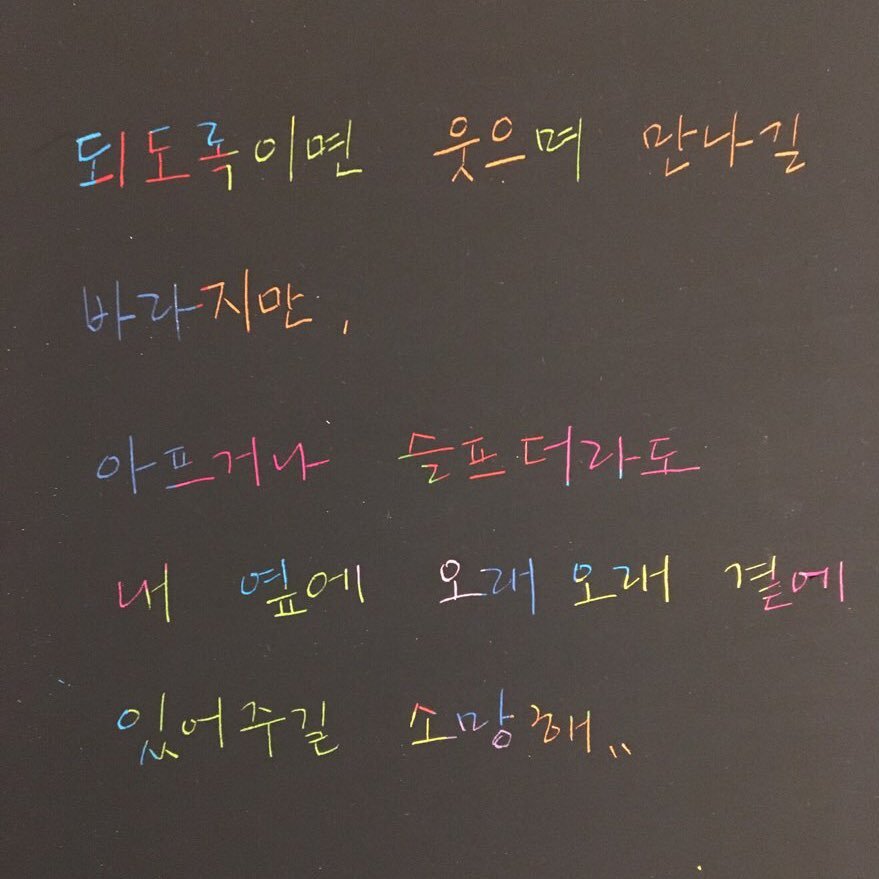 되도록이면 웃으며 만나길
바라지만,
아프거나 슬프더라도
내 옆에 오래오래 곁에
있어주길 소망해..